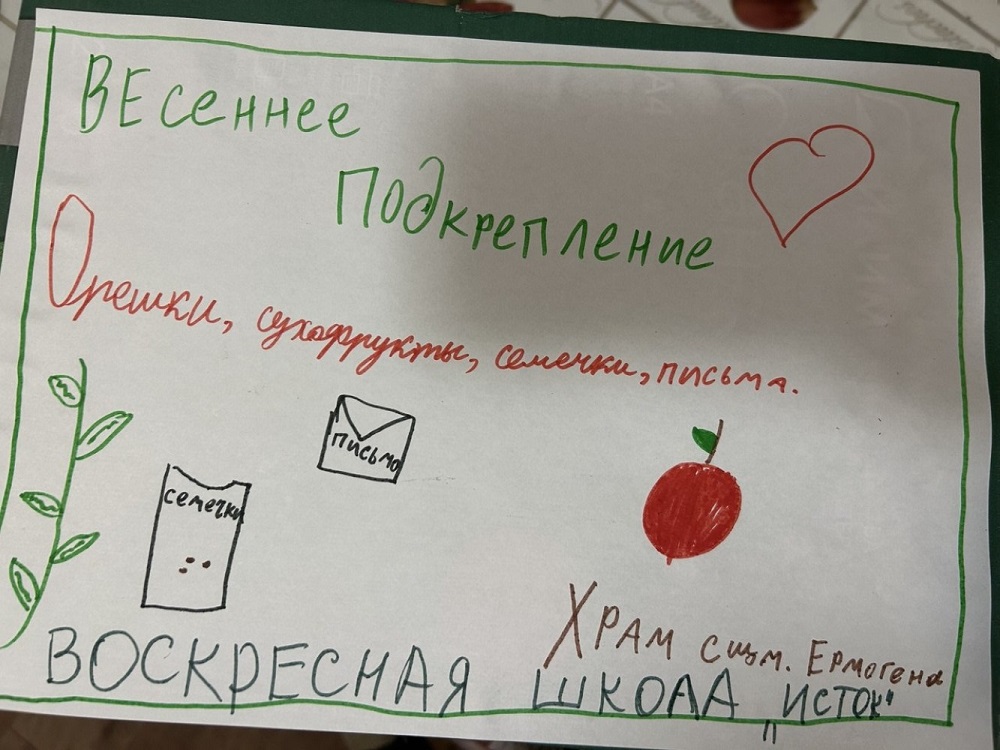 ВЕсеннее
Подкрепление
Орешки, сухофрукты, семечки, письма.
письмо
семечки
Храм сщм. Ермогена
ВОСКРЕСНАЯ ШКОЛА "ИСТОК"